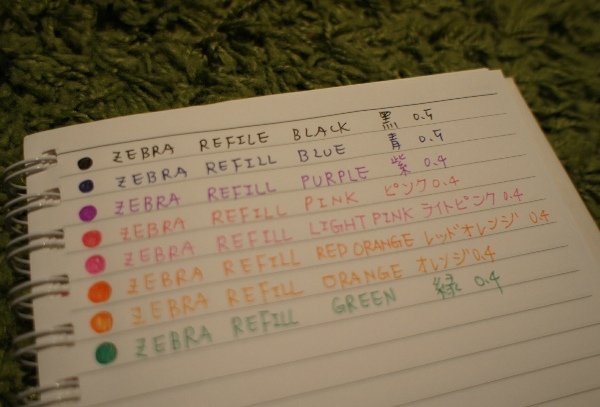 ZEBRA REFILE BLACK 黒 0.5
ZEBRA REFILL BLUE 青 0.5
ZEBRA REFILL PURPLE 紫 0.4
ZEBRA REFILL PINK ピンク 0.4
ZEBRA REFILL LIGHT PINK ライトピンク 0.4
ZEBRA REFILL RED ORANGE レッドオレンジ 0.4
ZEBRA REFILL ORANGE オレンジ 0.4
ZEBRA REFILL GREEN 緑 0.4